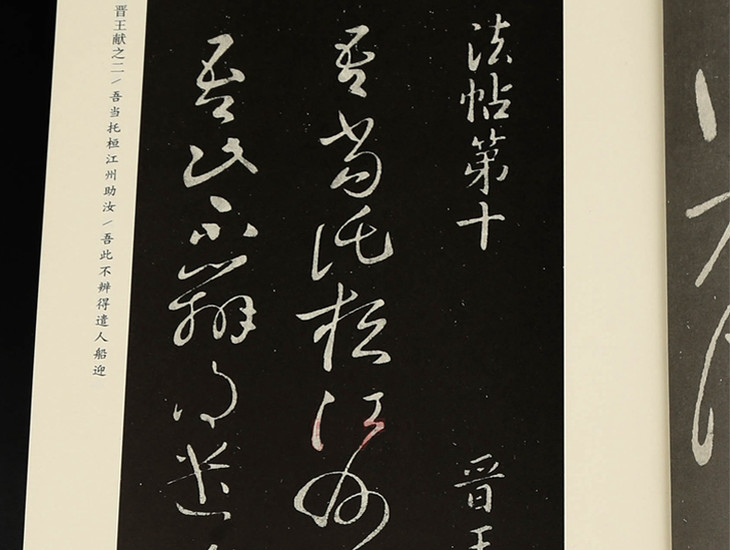 法帖第十
晋王
吾当托桓江州
吾此不辨得遣
晋王献之二/吾当托桓江州助汝/吾此不辨得遣人船迎